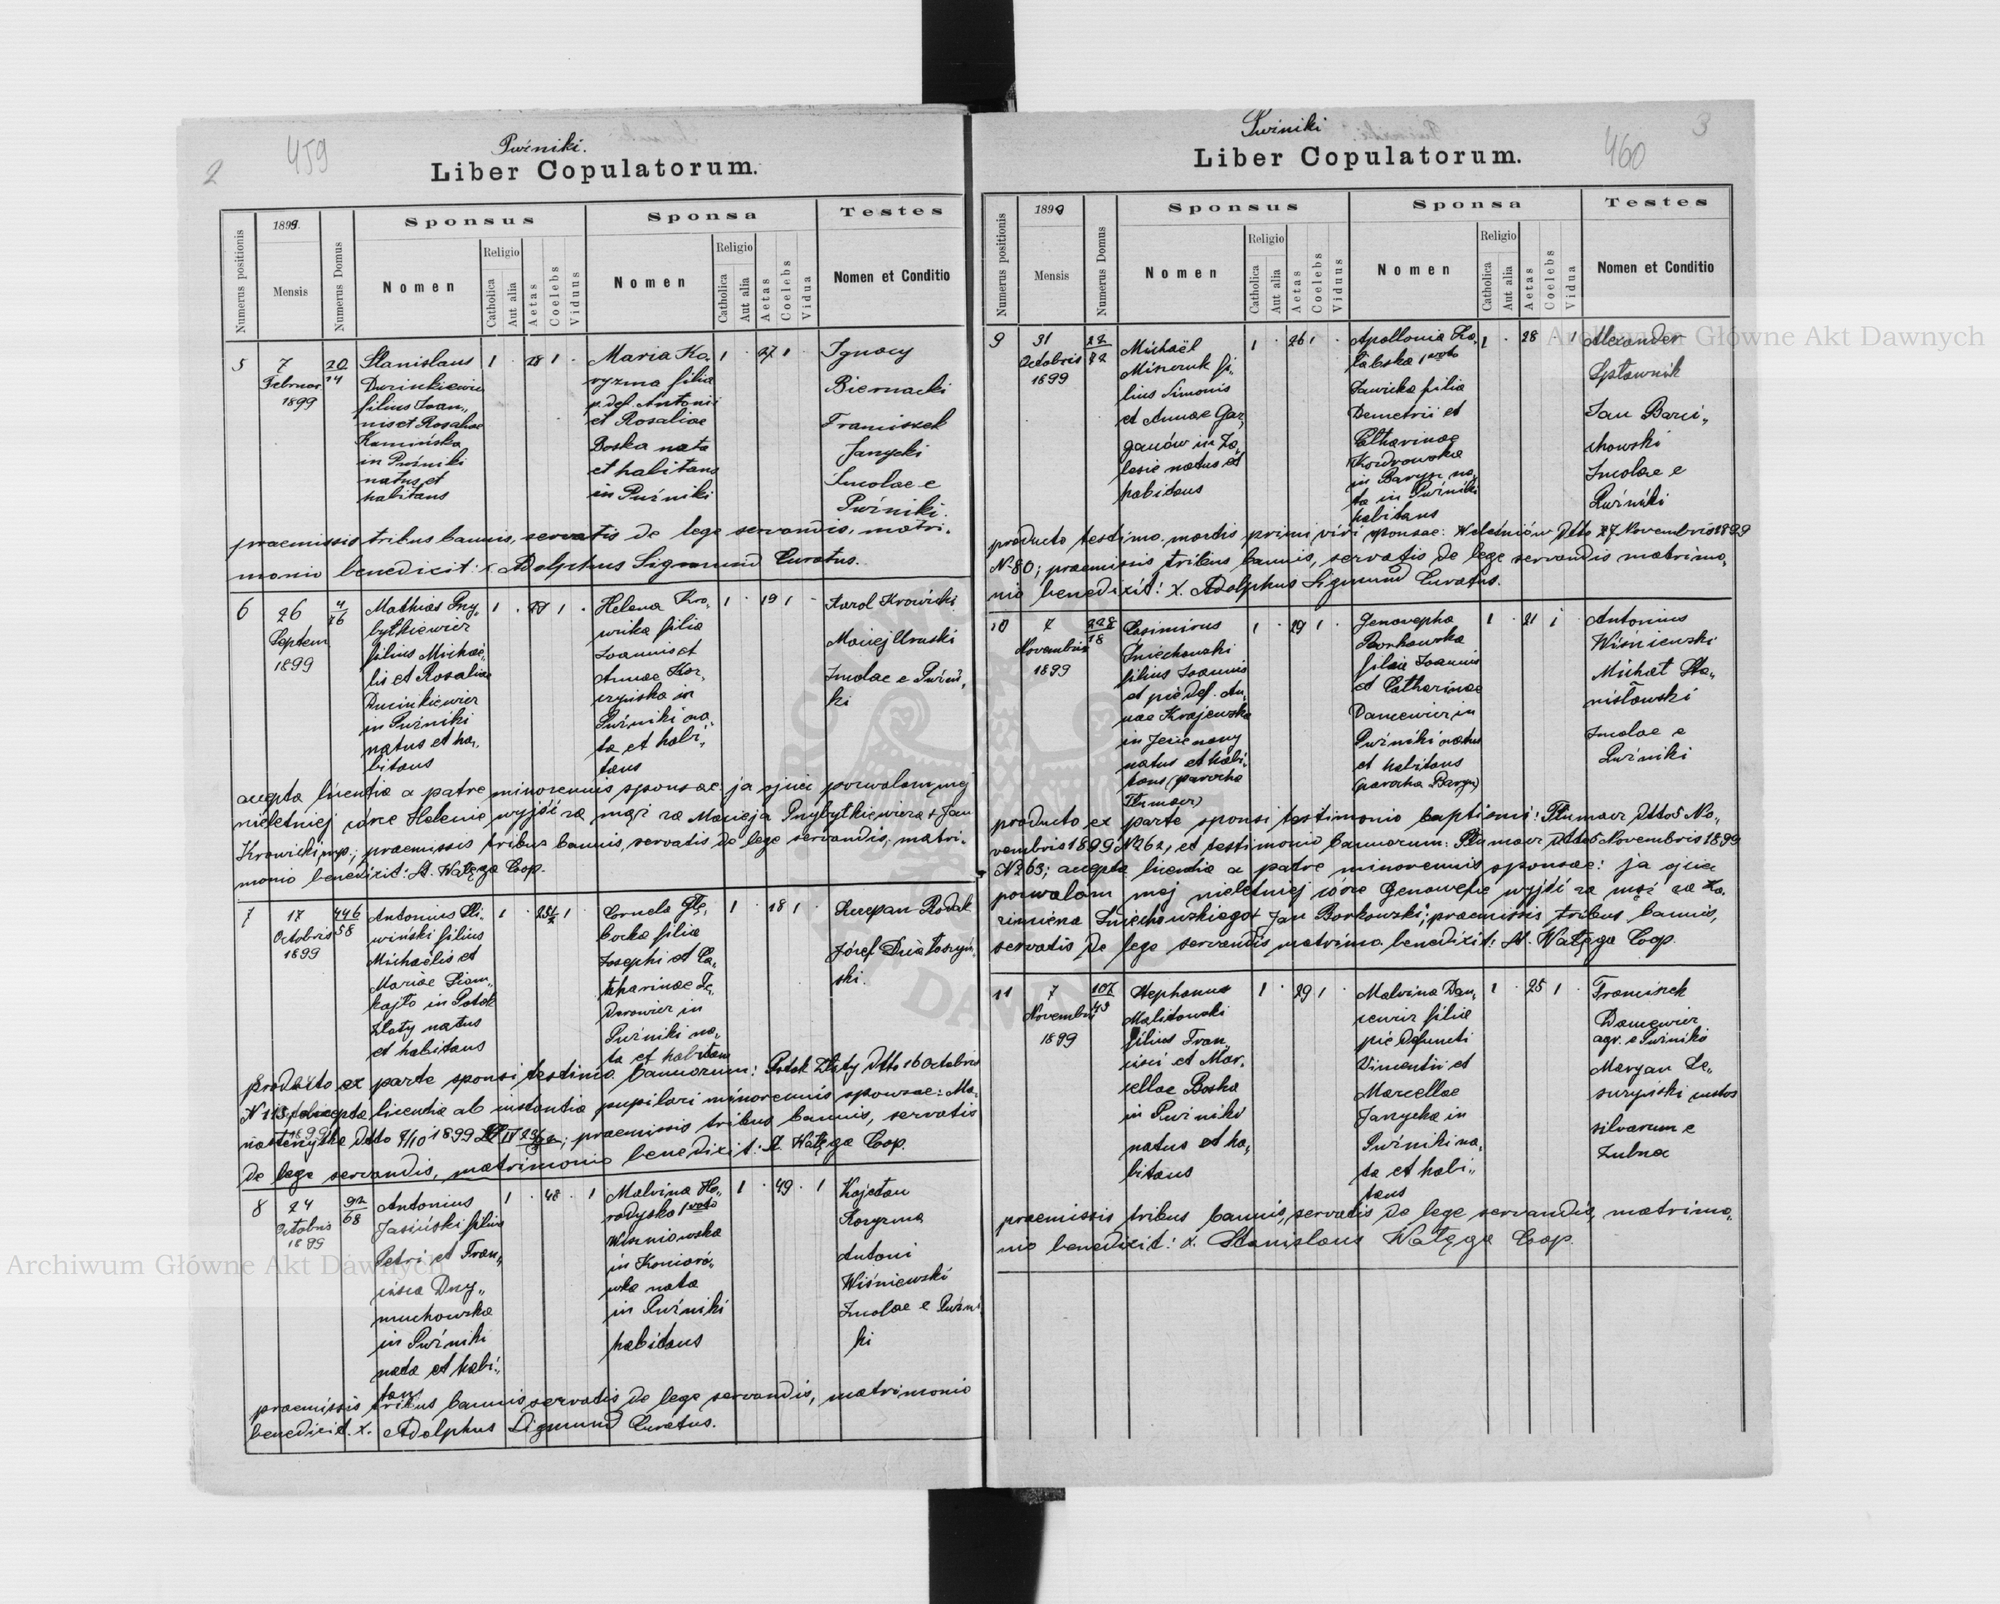 2
459
Puźniki.
Liber Copulatorum.
Numerus positionis
1899.
Mensis
Numerus Domus
Sponsus
Nomen
Religio
Catholica
Aut alia
Aetas
Coelebs
Viduus
Sponsa
Nomen
Religio
Catholica
Aut alia
Aetas
Coelebs
Vidua
Testes
Nomen et Conditio
5
7
Februar
1899
20
14
Stanislaus
Duzinkiewicz
filius Joan„
nis et Rosaliae
Kamińska
in Puźniki
natus et
habitans
1 · 28 1 ·
Maria Ko„
ryzma filia
p. def. Antonii
et Rosaliae
Boska nata
et habitans
in Puźniki
1 · 27 1
Ignacy
Biernacki
Franciszek
Janycki
Incolae e
Puźniki.
praemissis tribus bannis, servatis de lege servandis, matri„
monio benedixit: x. Adolphus Sigmund Curatus.
6
26
Septem
1899
4
76
Mathias Przy„
bytkiewicz
filius Michae„
lis et Rosaliae
Ducinkiewicz
in Puźniki
natus et ha„
bitans
1 · 27 1 ·
Helena Kro„
wicka filia
Joannis et
Annae Kor„
czyńska in
Puźniki na„
ta et habi„
tans
1 · 19 1 ·
Karol Krowicki
Maciej Uruski
Incolae e Puźni„
ki
accepta licentia a patre minorennis sponsae ja ojciec pozwalam mej
nieletniej córce Helenie wyjść za mąż za Macieja Przybytkiewicza + Jan
Krowicki mp.; praemissis tribus bannis, servatis de lege servandis, matri„
monio benedixit: St. Wałęga Coop.
7
17
Octobris
1899
446
58
Antonius Śli„
wiński filius
Michaëlis et
Mariae Siom„
kajło in Potok
Złoty natus
et habitans
1 · 1 ·
Cornela Głę„
bocka filia
Josephi et Ca„
tharinae Fe„
dorowicz in
Puźniki na„
ta et habitans
1 · 18 1 ·
Szczepan Rodak
Józef Działoszyń„
ski.
producto ex parte sponsi testimo. bannorum: Potok Złoty ddto 16 Octobris
accepta licentia ab instantia pupilari minorennis sponsae: Mo„
nasterzyska ddto 9/10 1899 praemissis tribus bannis, servatis
de lege servandis, matrimonio benedixit: St. Wałęga Coop.
8
24
Octobris
1899
92
68
Antonius
Jasiński filius
Petri et Fran„
cisca Dny„
muchowska
in Puźniki
nata et habi„
tans
1 · 48 · 1
Malvina Ho„
rodyska 1 voto
Wiśniowska
in Komaró„
wka nata
in Puźniki
habitans
1 · 49 · 1
Kajetan
Koryzma
Antoni
Wiśniewski
Incolae e Puźni
ki
praemissis tribus bannis servatis de lege servandis, matrimonio
benedixit. x. Adolphus Sigmund Curatus.
3
460
Puźniki
Liber Copulatorum.
Numerus positionis
1899
Mensis
Numerus Domus
Sponsus
Nomen
Religio
Catholica
Aut alia
Aetas
Coelebs
Viduus
Sponsa
Nomen
Religio
Catholica
Aut alia
Aetas
Coelebs
Vidua
Testes
Nomen et Conditio
9
31
Octobris
1899
22
82
Michaël
Miszczuk fi„
lius Simonis
et Annae Gar„
gauów in Za„
lesie natus et
habitans
1 · 26 1 ·
Apollonia Za„
labska 1 voto
Sawicka filia
Demetrii et
Catharinae
Kordrowska
in Barysz na„
ta in Puźniki
habitans
1 · 28 · 1
Alexander
Spławnik
Jan Barci„
chowski
Incolae e
Puźniki
producto testimo. mortis primi viri sponsae: Weleśniów ddto 27 Novembris 1899
N. 80; praemissis tribus bannis, servatis de lege servandis matrimo„
nio benedixit: x. Adolphus Sigmund Curatus.
10
7
Novembris
1899
228
18
Casimirus
Śniechowski
filius Joannis
et pie def. An„
nae Krajewska
in Jezierzany
natus et habi„
tans (parochia
Tłumacz)
1 · 29 1 ·
Genovepha
Borkowska
filia Joannis
et Catharinae
Dancewicz in
Puźniki natus
et habitans
(parochia Barysz)
1 · 21 1
Antonius
Wiśniewski
Michał Sta„
nisławski
Incolae e
Puźniki
producto ex parte sponsi testimonio baptismi: Tłumacz ddto 5 No„
vembris 1899 N 262, et testimonio bannorum: Tłumacz ddto 5 Novembris 1899
N 263; accepta licentia a patre minorennis sponsae: ja ojciec
pozwalam mej nieletniej córce Genowefie wyjść za mąż za Ka„
zimierza Śniechowskiego + Jan Borkowski; praemissis tribus bannis,
servatis de lege servandis matrimo. benedixit: St. Wałęga Coop.
11
7
Novembris
1899
107
43
Stephanus
Malikowski
filius Fran„
cisci et Mar„
cellae Boska
in Puźniki
natus et ha„
bitans
1 · 29 1 ·
Malvina Dan„
cewicz filia
pie defuncti
Vincentii et
Marcellae
Janycka in
Puźniki na„
ta et habi„
tans
1 · 25 1 ·
Franciszek
Dancewicz
agr. e Puźniki
Maryan Le„
szczyński custos
silvarum e
Zubrza
praemissis tribus bannis, servatis de lege servandis, matrimo„
nio benedixit: x. Stanislaus Wałęga Coop.
Archiwum Główne Akt Dawnych
Archiwum Główne Akt Dawnych